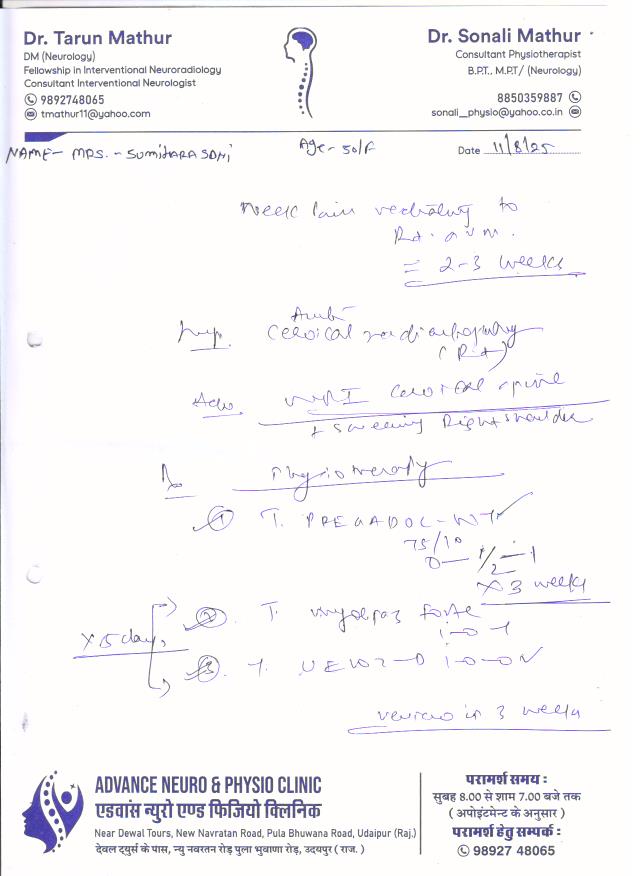 Dr. Tarun Mathur
DM (Neurology)
Fellowship in Interventional Neuroradiology
Consultant Interventional Neurologist
9892748065
tmathur11@yahoo.com
Dr. Sonali Mathur
Consultant Physiotherapist
B.P.T., M.P.T/ (Neurology)
8850359887
sonali_physio@yahoo.co.in
NAME- MRS. -
Age- 50/F
Date 11/8/25
Neck Pain to
Rt.
= 2-3 weeks
Imp. Cervical
(Rt)
Adv. MRI Cervical spine
+ Screening Right shoulder
Rx Physiotherapy
① T. PREGADOL-NT
75/10
0 - 1/2 - 1
X 3 weeks
② T. forte
1-0-1
X 5 days
③ T. 1-0-0
review in 3 weeks
ADVANCE NEURO & PHYSIO CLINIC
एडवांस न्युरो एण्ड फिजियो क्लिनिक
Near Dewal Tours, New Navratan Road, Pula Bhuwana Road, Udaipur (Raj.)
देवल ट्युर्स के पास, न्यु नवरतन रोड़ पुला भुवाणा रोड़, उदयपुर ( राज. )
परामर्श समय :
सुबह 8.00 से शाम 7.00 बजे तक
( अपोइंटमेन्ट के अनुसार )
परामर्श हेतु सम्पर्क :
98927 48065